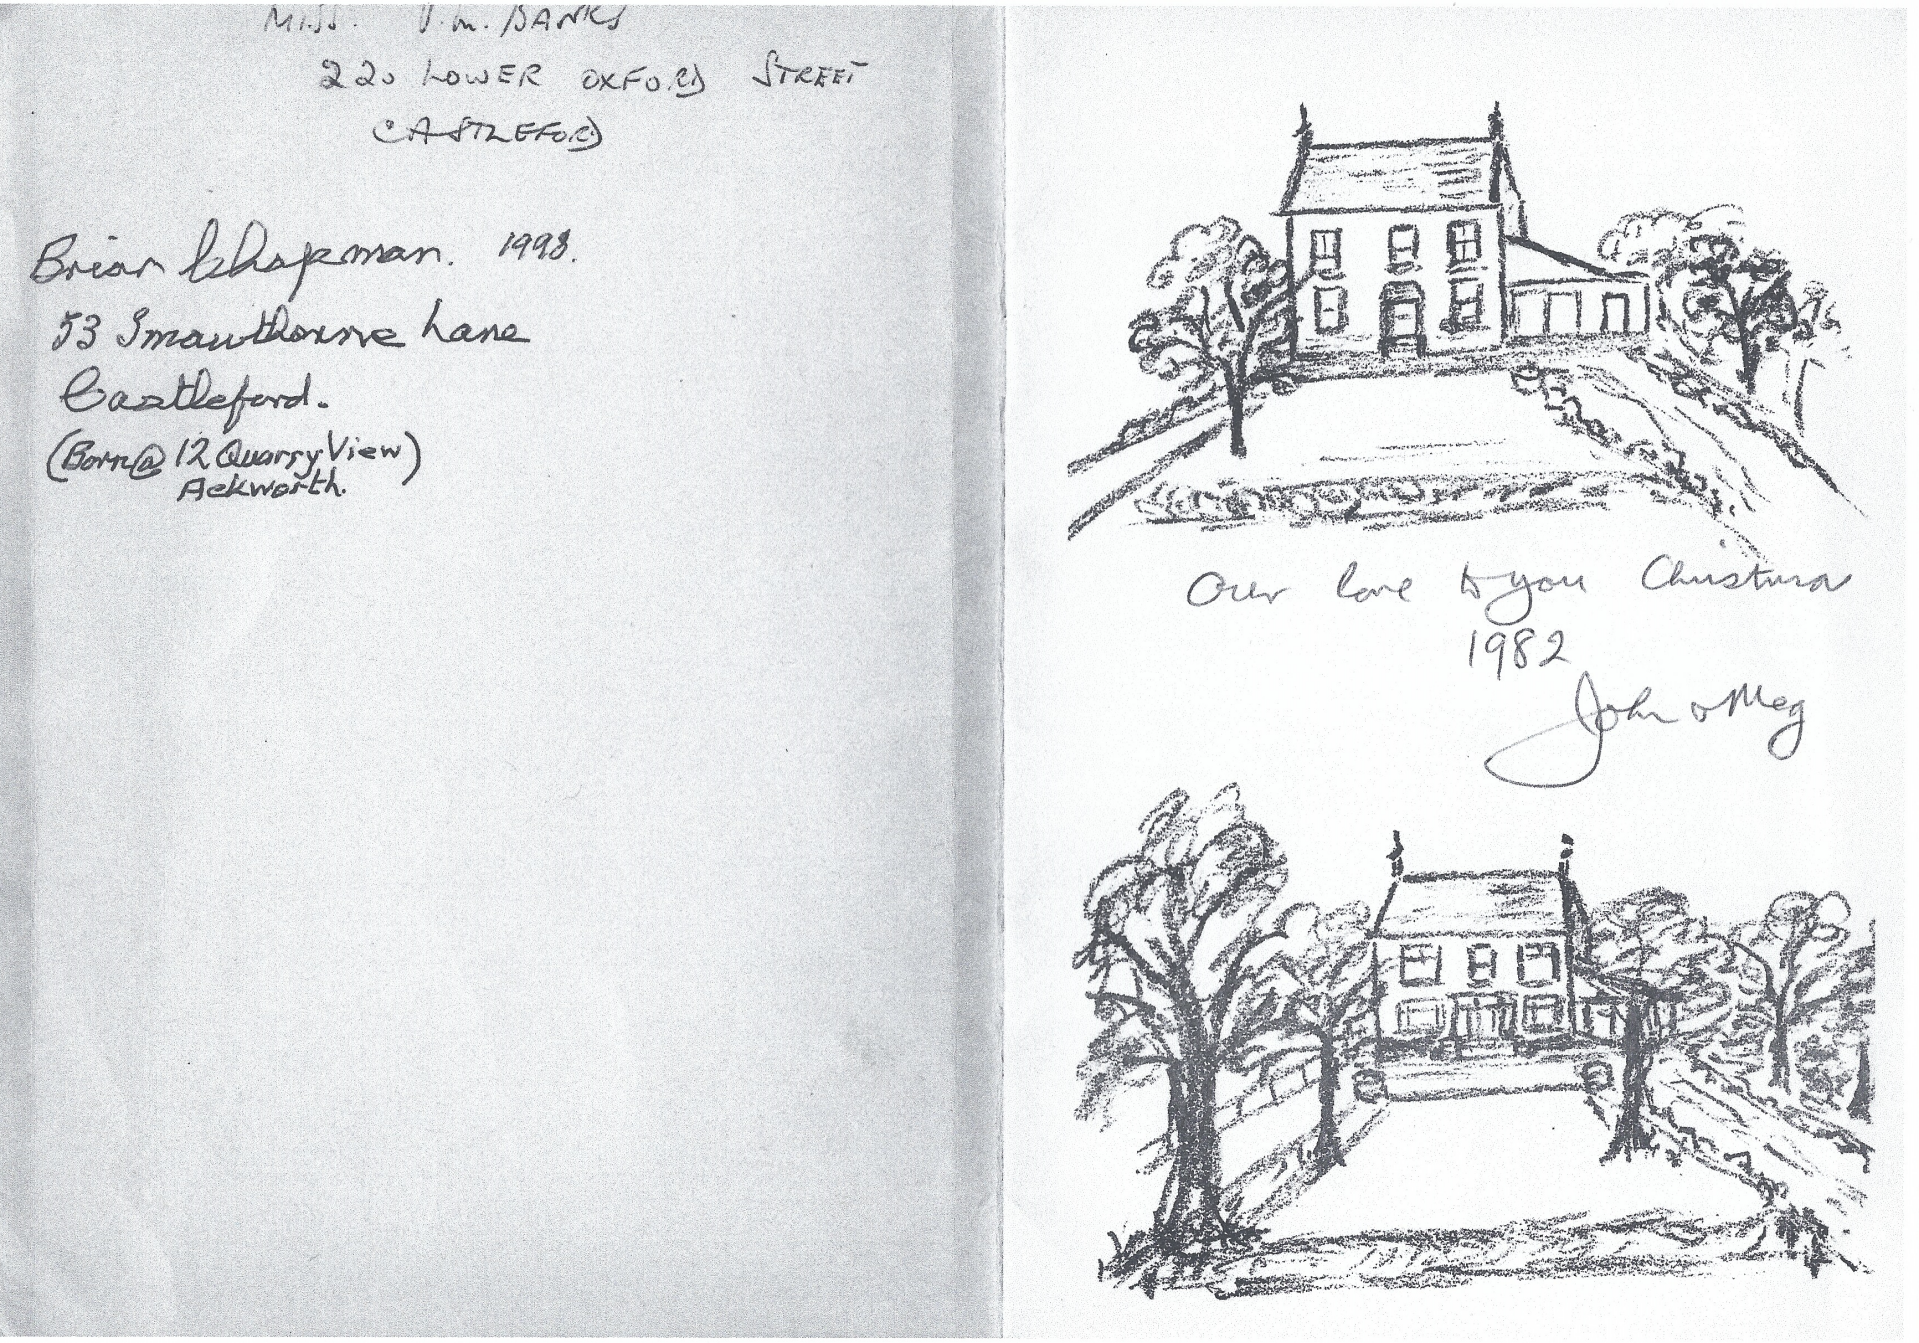 MISS. V.M. BANKS
220 LOWER OXFORD STREET
CASTLEFORD
Brian Chapman. 1998.
53 Smawthorne Lane
Castleford.
(Born@ 12 Quarry View)
Ackworth.
Our love to you Christmas
1982
John & Meg